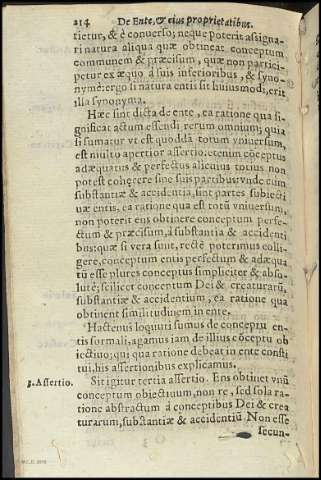 214 De Ente, & eius proprietatibus.
tietur, & è conuerso; neque poterit assigna-
ri natura aliqua quæ obtineat conceptum
communem & præcisum, quæ non partici-
petur ex æquo à suis inferioribus, & syno-
nymè: ergo si natura entis sit huiusmodi, erit
illa synonyma.
Hæc sint dicta de ente, ea ratione qua si-
gnificat actum essendi rerum omnium; quia
si sumatur vt est quoddā totum vniuersum,
est multo apertior assertio: etenim cōceptus
adæquatus & perfectus alicuius totius non
potest cohęrere sine suis partibus: vnde cum
substantiæ & accidentia, sint partes subiecti
uæ entis, ea ratione qua est totū vniuersum,
non poterit ens obtinere conceptum perfe-
ctum & præcisum, à substantia & accidenti
bus: quæ si vera sunt, rectè poterimus colli-
gere, conceptum entis perfectum & adæqua
tū esse plures conceptus simpliciter & abso-
lutè, scilicet conceptum Dei & creaturarū,
substantiæ & accidentium, ea ratione qua
obtinent similitudinem in ente.
Hactenus loquuti sumus de conceptu en-
tis formali, agamus iam de illius cōceptu ob
iectiuo; qui qua ratione debeat in ente consti
tui, his assertionibus explicamus.
3. Assertio. Sit igitur tertia assertio. Ens obtinet vnū
conceptum obiectiuum, non re, sed sola ra-
tione abstractum à conceptibus Dei & crea
turarum, substantiæ & accidentiū Non esse
secun-